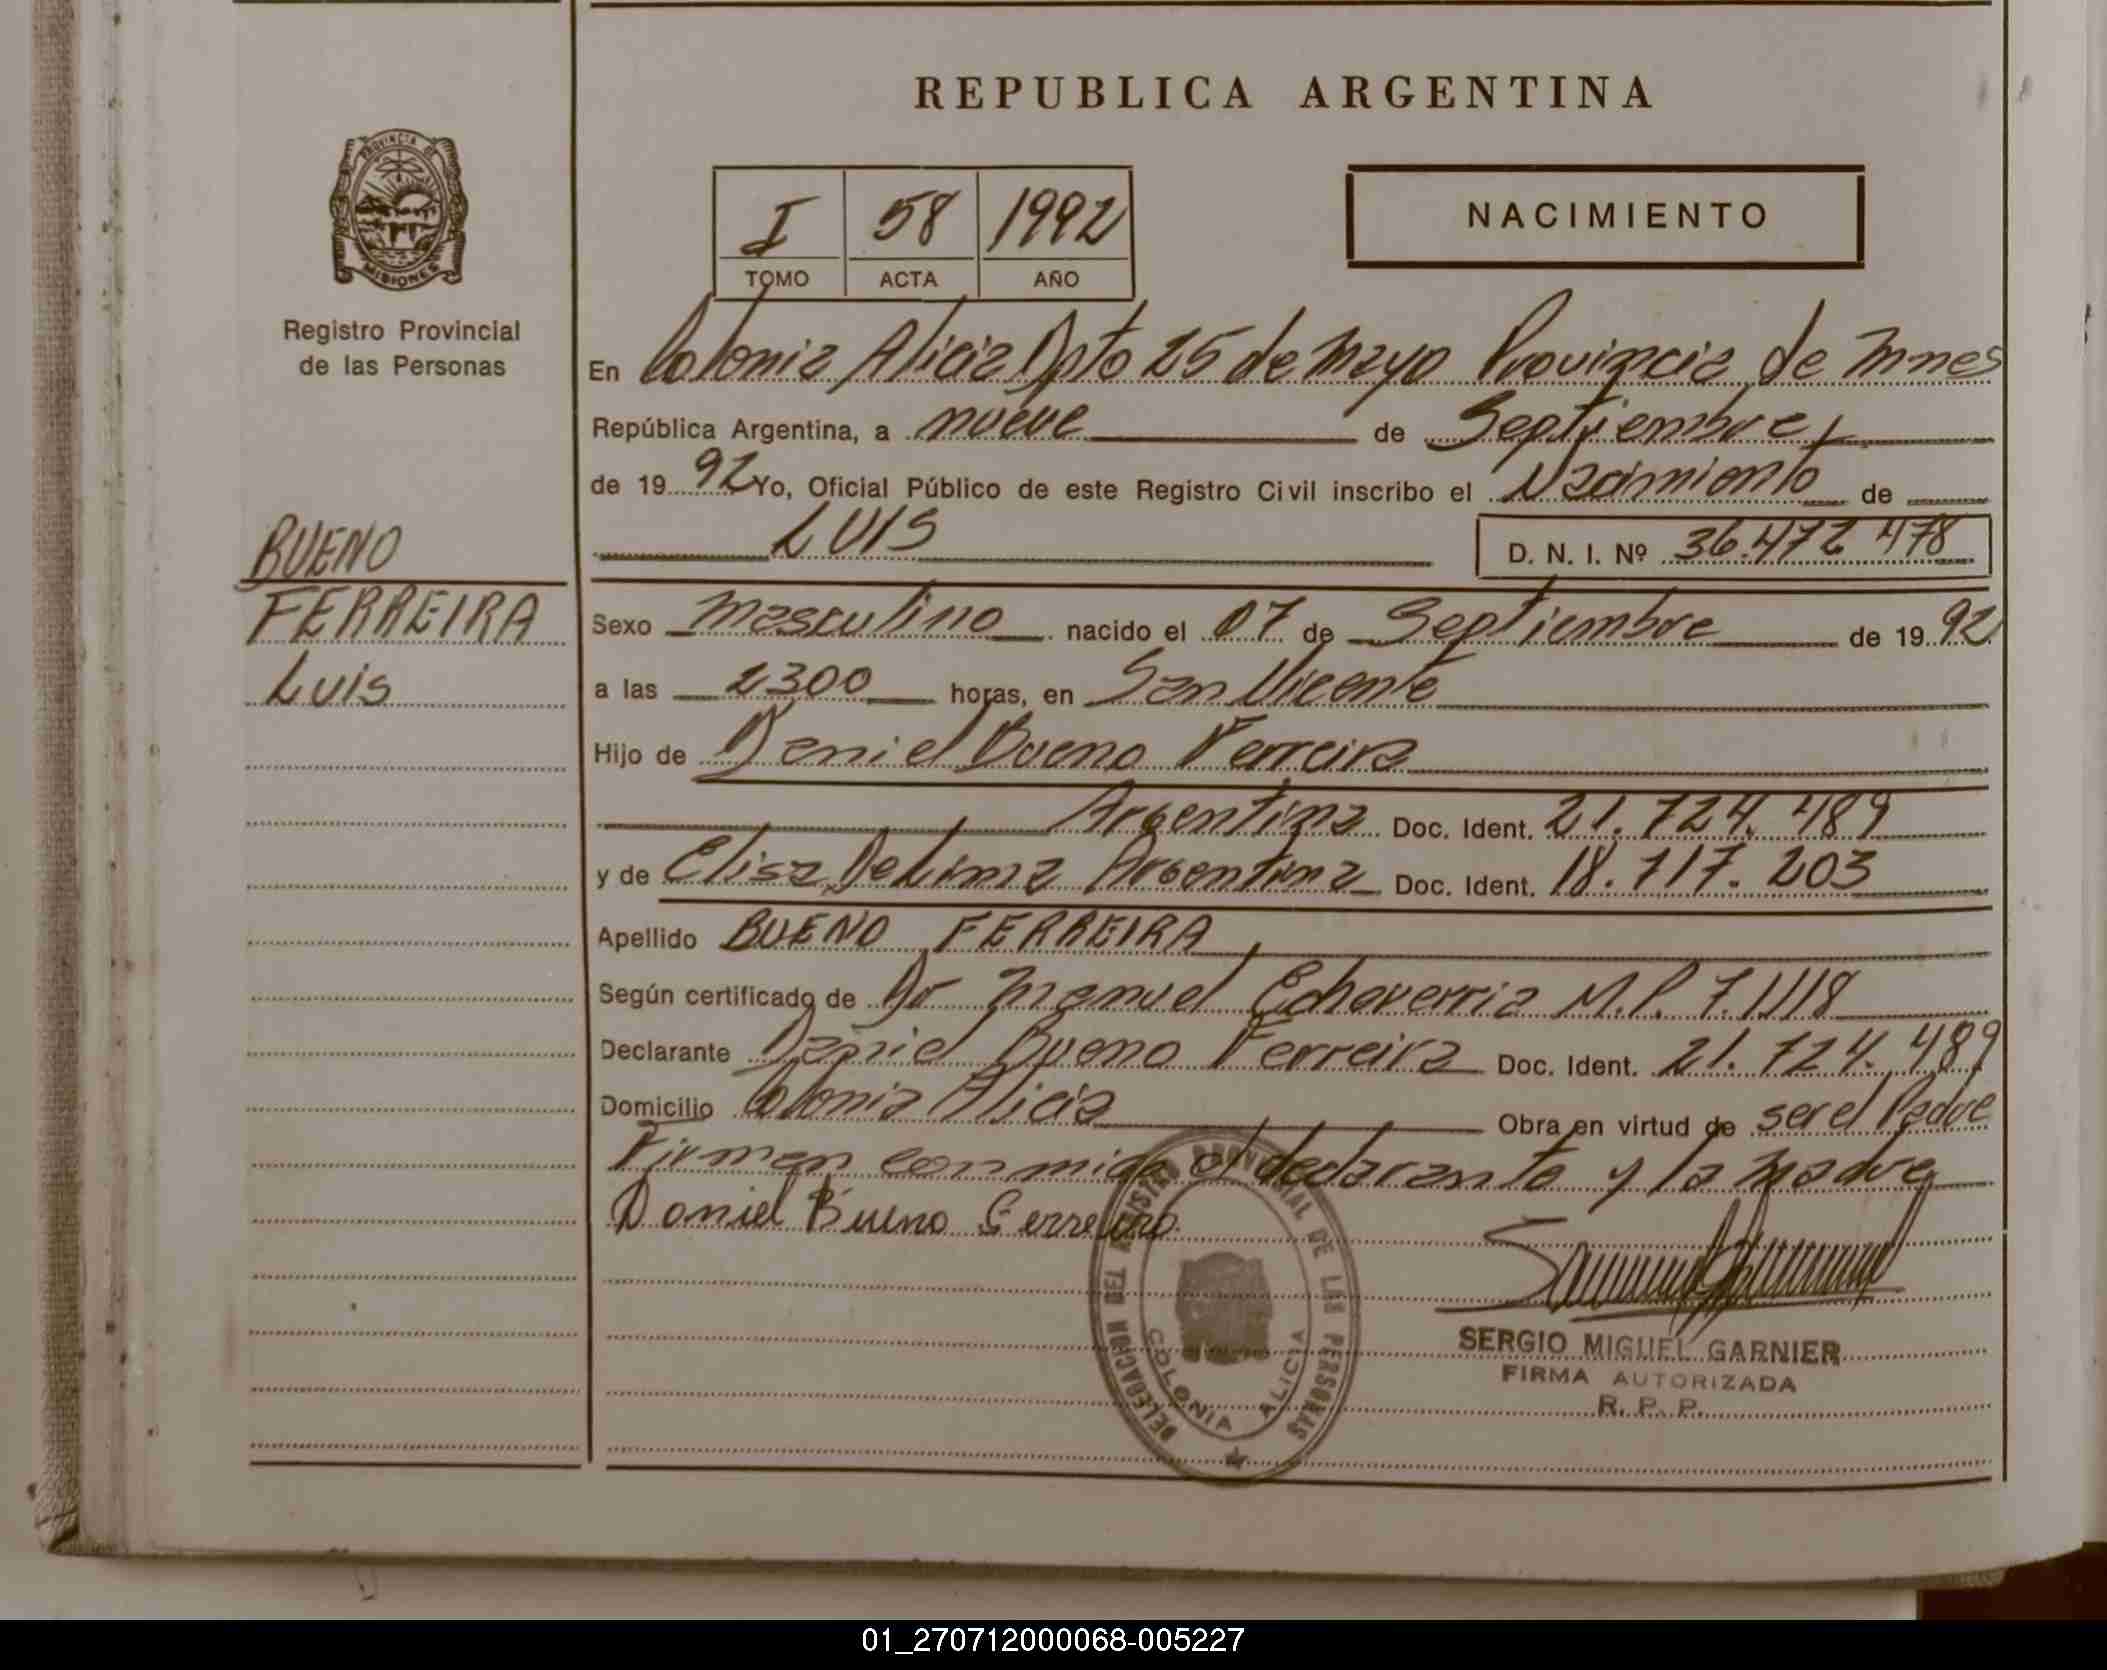 REPUBLICA ARGENTINA
PROVINCIA DE
MISIONES
Registro Provincial
de las Personas
I 58 1992
TOMO ACTA AÑO
NACIMIENTO
En Colonia Alicia Dpto 25 de Mayo Provincia de Mnes
República Argentina, a nueve de Septiembre
de 19 92 Yo, Oficial Público de este Registro Civil inscribo el Nacimiento de
LUIS D. N. I. Nº 36.472 478
BUENO
FERREIRA
Luis
Sexo Masculino nacido el 07 de Septiembre de 19 92
a las 2300 horas, en San Vicente
Hijo de Daniel Bueno Ferreira
Argentina Doc. Ident. 21.724.489
y de Elisa DeLima Argentina Doc. Ident. 18.717.203
Apellido BUENO FERREIRA
Según certificado de Dr Manuel Echeverria M.P.
Declarante Daniel Bueno Ferreira Doc. Ident. 21.724.489
Domicilio Colonia Alicia Obra en virtud de ser el Padre
Firman conmigo el declarante y la Madre
Daniel Bueno Ferreira
DELEGACION DEL REGISTRO PROVINCIAL DE LAS PERSONAS
COLONIA ALICIA
SERGIO MIGUEL GARNIER
FIRMA AUTORIZADA
R. P. P.
01_270712000068-005227